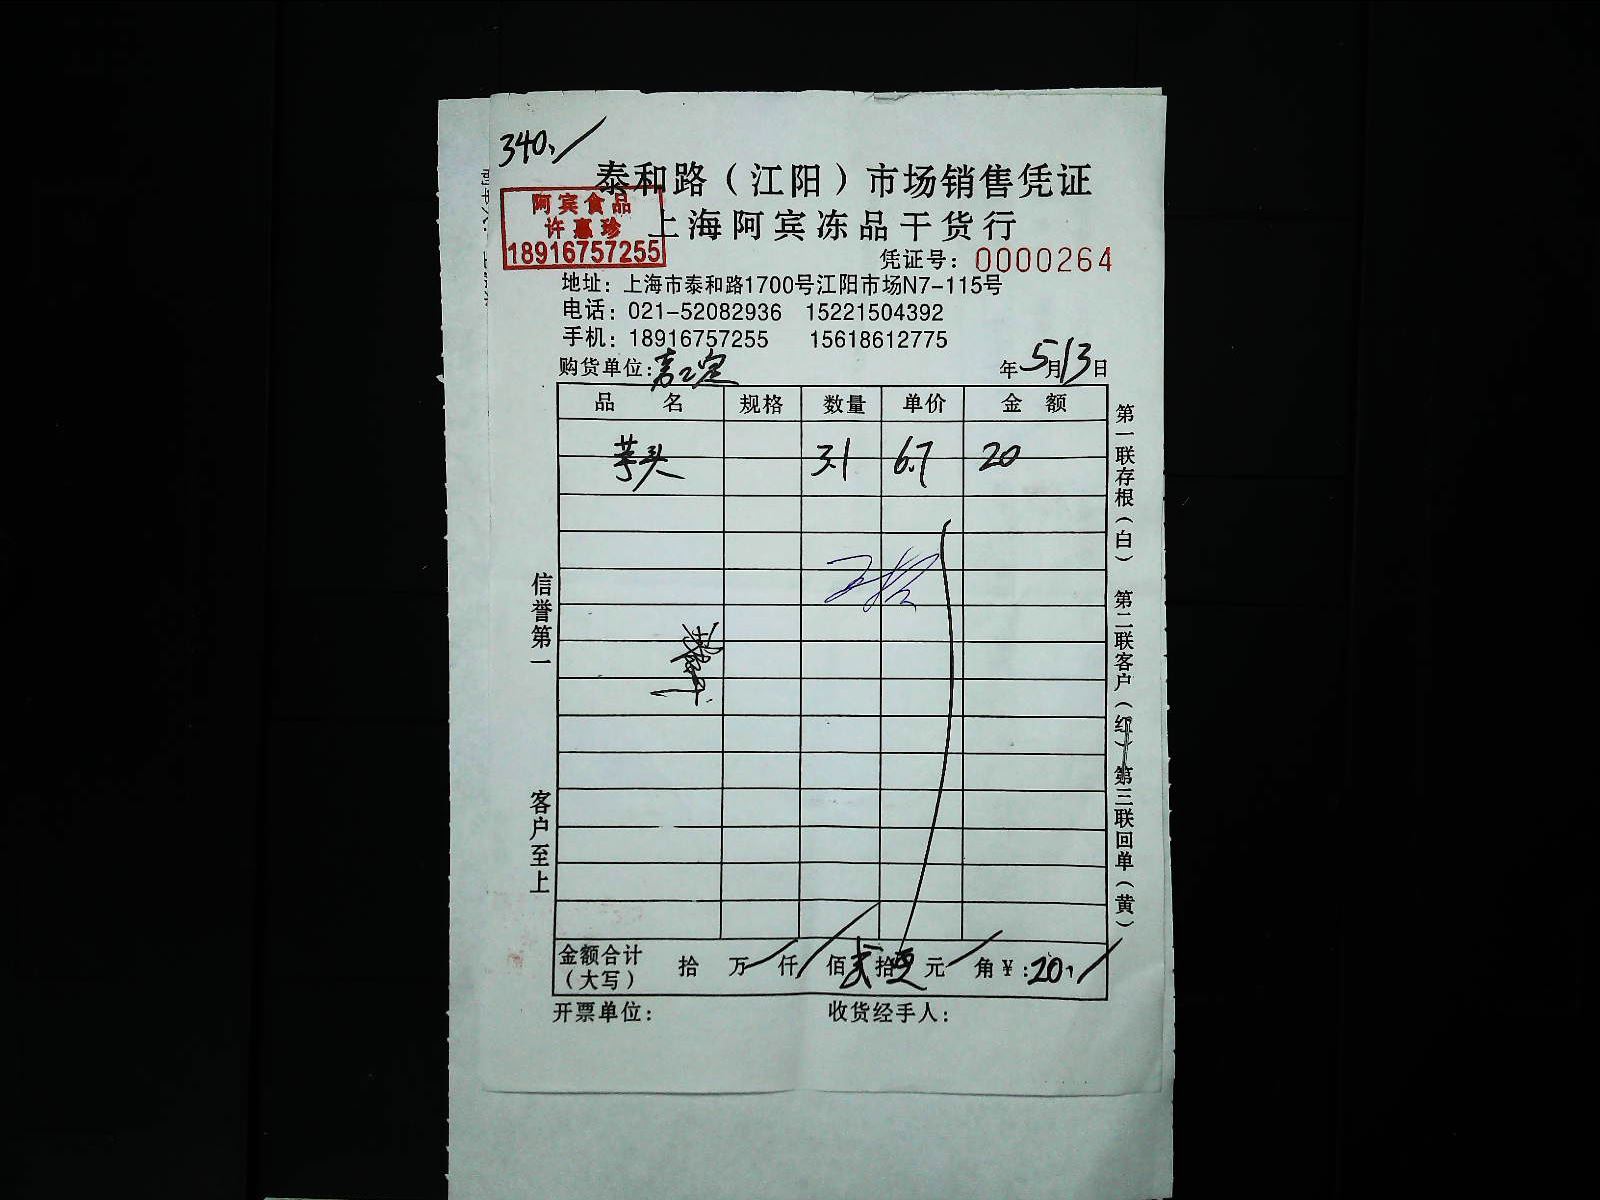 340、
泰和路（江阳）市场销售凭证
阿宾食品
许惠珍
18916757255
上海阿宾冻品干货行
凭证号：0000264
地址：上海市泰和路1700号江阳市场N7-115号
电话：021-52082936 15221504392
手机：18916757255 15618612775
购货单位： 年5月13日
品 名 规格 数量 单价 金 额
芋头 3.1 6.7 20
信誉第一
客户至上
第一联存根（白） 第二联客户（红） 第三联回单（黄）
金额合计（大写） 拾 万 仟 佰 贰 拾 元 角 ￥:20
开票单位： 收货经手人：